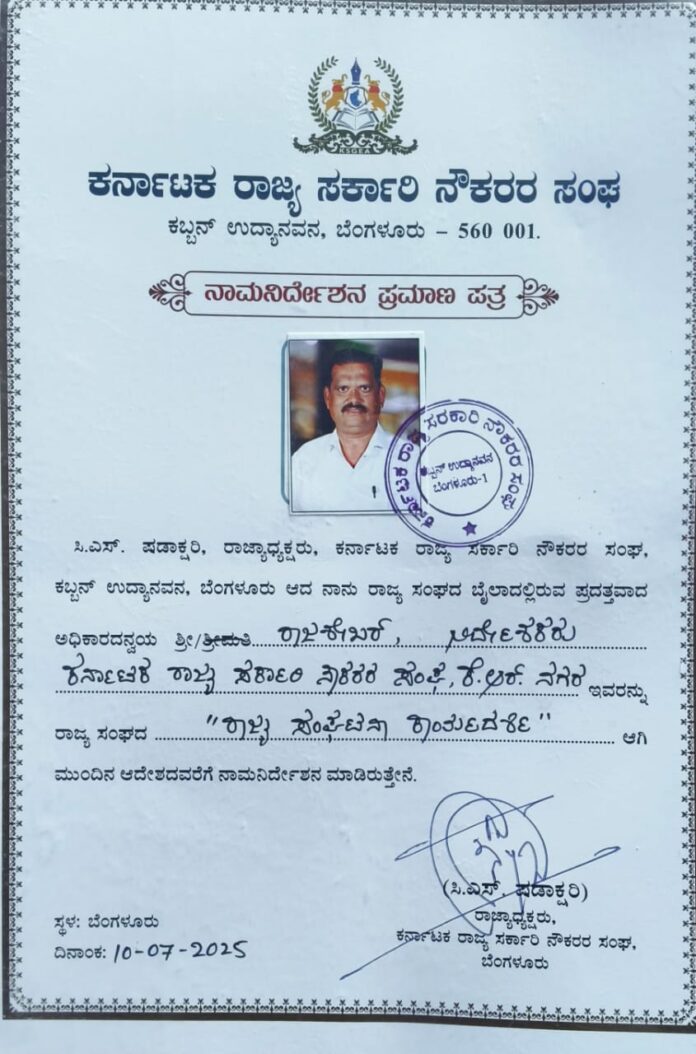 KSGEA
ಕರ್ನಾಟಕ ರಾಜ್ಯ ಸರ್ಕಾರಿ ನೌಕರರ ಸಂಘ
ಕಬ್ಬನ್ ಉದ್ಯಾನವನ, ಬೆಂಗಳೂರು – 560 001.
ನಾಮನಿರ್ದೇಶನ ಪ್ರಮಾಣ ಪತ್ರ
ಕರ್ನಾಟಕ ರಾಜ್ಯ ಸರಕಾರಿ ನೌಕರರ ಸಂಘ
ಕಬ್ಬನ್ ಉದ್ಯಾನವನ
ಬೆಂಗಳೂರು-1
ಸಿ.ಎಸ್. ಷಡಾಕ್ಷರಿ, ರಾಜ್ಯಾಧ್ಯಕ್ಷರು, ಕರ್ನಾಟಕ ರಾಜ್ಯ ಸರ್ಕಾರಿ ನೌಕರರ ಸಂಘ,
ಕಬ್ಬನ್ ಉದ್ಯಾನವನ, ಬೆಂಗಳೂರು ಆದ ನಾನು ರಾಜ್ಯ ಸಂಘದ ಬೈಲಾದಲ್ಲಿರುವ ಪ್ರದತ್ತವಾದ
ಅಧಿಕಾರದನ್ವಯ ಶ್ರೀ/ಶ್ರೀಮತಿ ರಾಜಶೇಖರ್, ನಿರ್ದೇಶಕರು
ಕರ್ನಾಟಕ ರಾಜ್ಯ ಸರ್ಕಾರಿ ನೌಕರರ ಸಂಘ, ಕೆ.ಆರ್. ನಗರ ಇವರನ್ನು
ರಾಜ್ಯ ಸಂಘದ "ರಾಜ್ಯ ಸಂಘಟನಾ ಕಾರ್ಯದರ್ಶಿ" ಆಗಿ
ಮುಂದಿನ ಆದೇಶದವರೆಗೆ ನಾಮನಿರ್ದೇಶನ ಮಾಡಿರುತ್ತೇನೆ.
(ಸಿ.ಎಸ್. ಷಡಾಕ್ಷರಿ)
ರಾಜ್ಯಾಧ್ಯಕ್ಷರು,
ಕರ್ನಾಟಕ ರಾಜ್ಯ ಸರ್ಕಾರಿ ನೌಕರರ ಸಂಘ,
ಬೆಂಗಳೂರು
ಸ್ಥಳ: ಬೆಂಗಳೂರು
ದಿನಾಂಕ: 10-07-2025